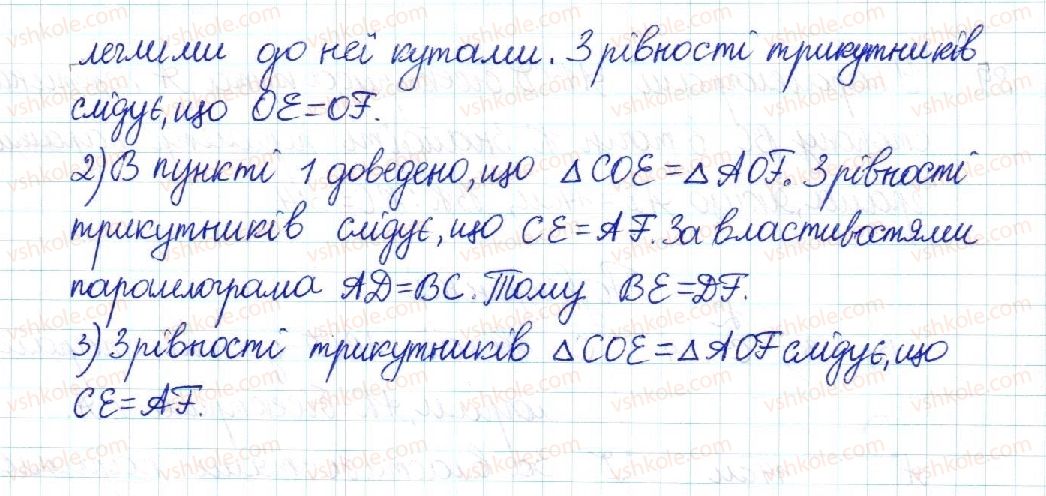 леглими до неї кутами. З рівності трикутників
слідує, що OE=OF.
2) В пункті 1 доведено, що △COE=△AOF. З рівності
трикутників слідує, що CE=AF. За властивостями
паралелограма AD=BC. Тому BE=DF.
3) З рівності трикутників △COE=△AOF слідує, що
CE=AF.